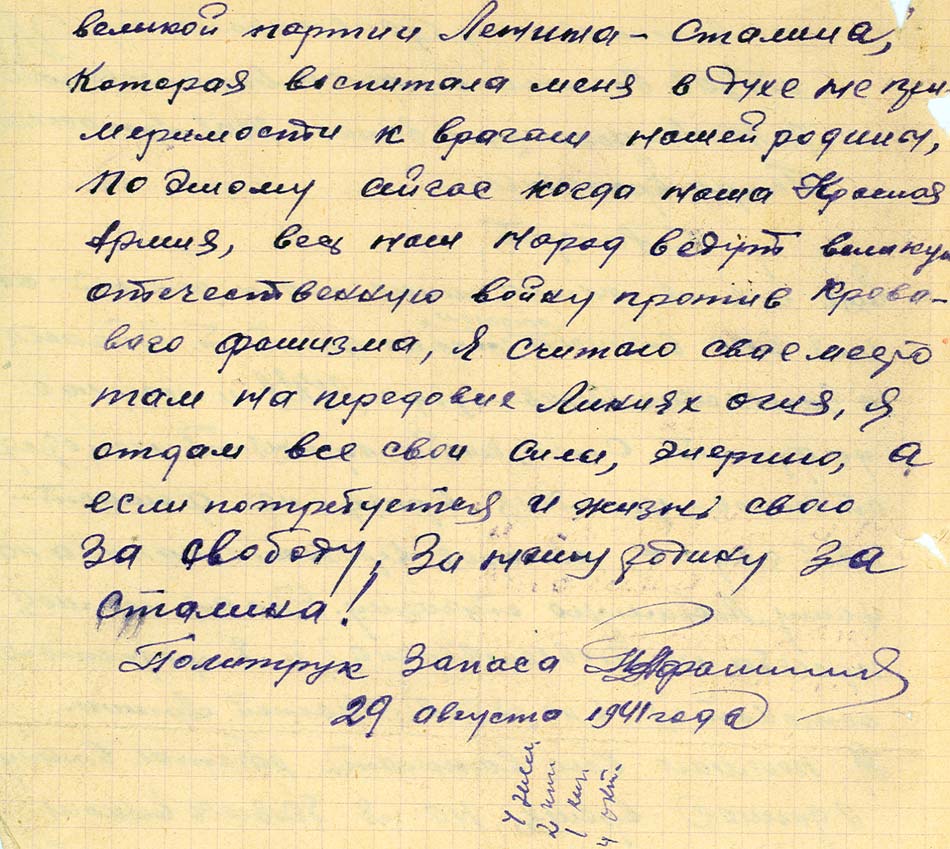 великой партии Ленина - Сталина,
Которая воспитала меня в духе не при-
меримости к врагам нашей родины,
По этому сейчас когда наша Красная
Армия, весь наш народ ведут великую
отечественную войну против Крова-
вого фашизма, Я считаю свае место
там на передовые Линиях огня, Я
отдам все свои силы, энергию, а
если потребуется и жизнь свою
За свободу, За нашу родину За
Сталина!
Политрук Запаса
29 августа 1941 года
4 экз.